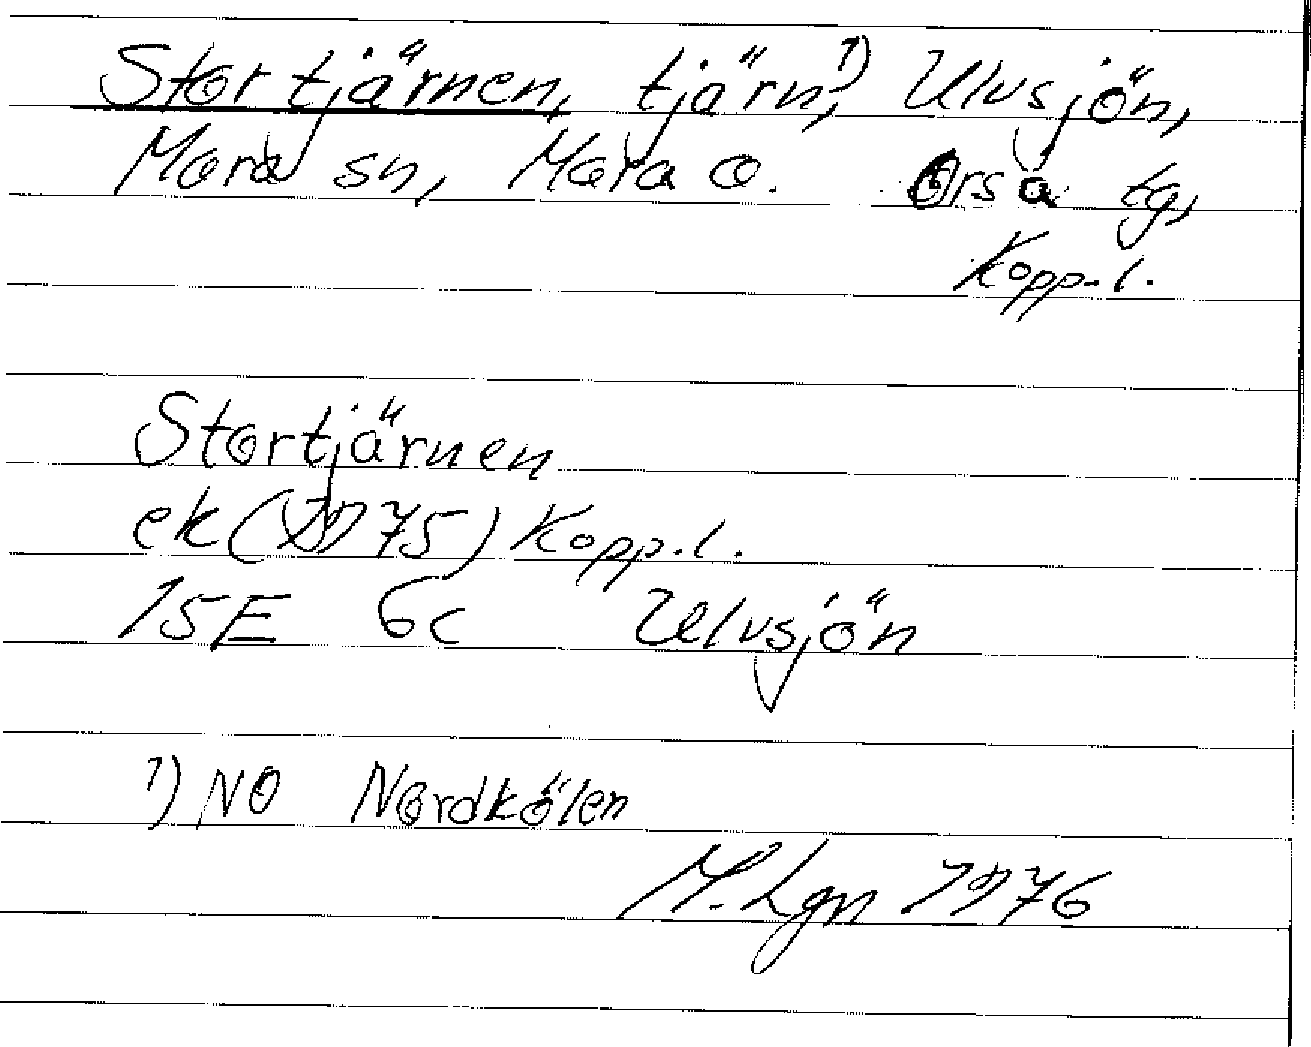 Stortjärnen, tjärn,¹⁾ Ulvsjön,
Mora sn, Mora o. Orsa tg,
Kopp.l.
Stortjärnen
ek (1975) Kopp.l.
15E 6c Ulvsjön
1) NO Nordkölen
M. Lgn 1976